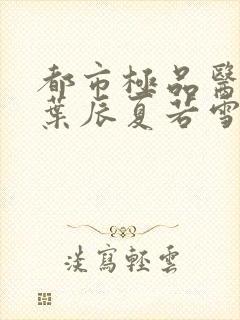 都市極品醫
葉辰夏若雪
淡寫輕雲